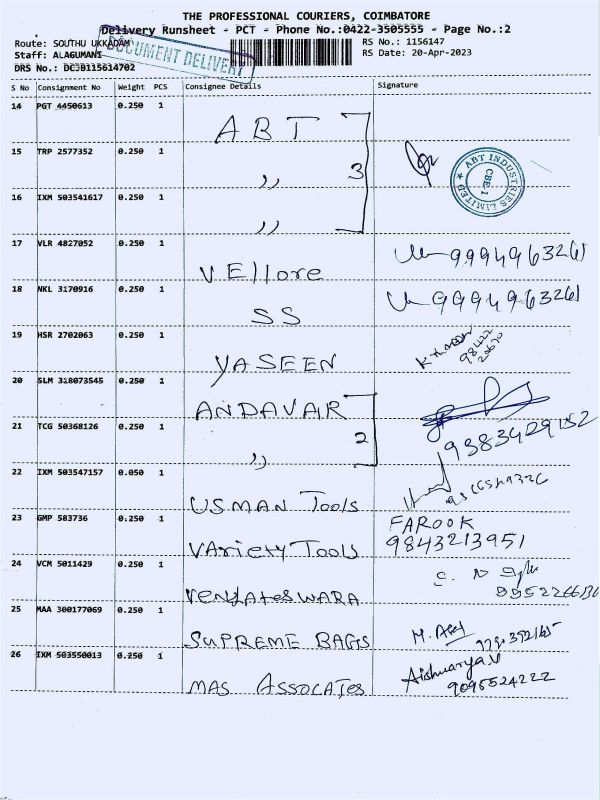 THE PROFESSIONAL COURIERS, COIMBATORE
Delivery Runsheet - PCT - Phone No.:0422-3505555 - Page No.:2
Route: SOUTHU UKKADAM
RS No.: 1156147
Staff: ALAGUMANI
RS Date: 20-Apr-2023
DRS No.: DCJB115614702
DOCUMENT DELIVERY
S No Consignment No Weight PCS Consignee Details Signature
14 PGT 4450613 0.250 1 ABT
15 TRP 2577352 0.250 1 ,, 3
ABT INDUSTRIES LIMITED CBE-1
16 IXM 503541617 0.250 1 ,,
17 VLR 4827052 0.250 1 VEllore 9994963261
18 NKL 3170916 0.250 1 SS 9994963261
19 HSR 2702063 0.250 1 YASEEN 98422
20 SLM 318073545 0.250 1 ANDAVAR
21 TCG 50368126 0.250 1 ,, 2 9383429152
22 IXM 503547157 0.050 1 USMAN Tools
23 GMP 583736 0.250 1 VAriety Tools FAROOK
9843213951
24 VCM 5011429 0.250 1 VENKATESWARA
25 MAA 300177069 0.250 1 SUPREME BAGS
26 IXM 503550013 0.250 1 MAS ASSOCATES Aishwarya.V
9095524222